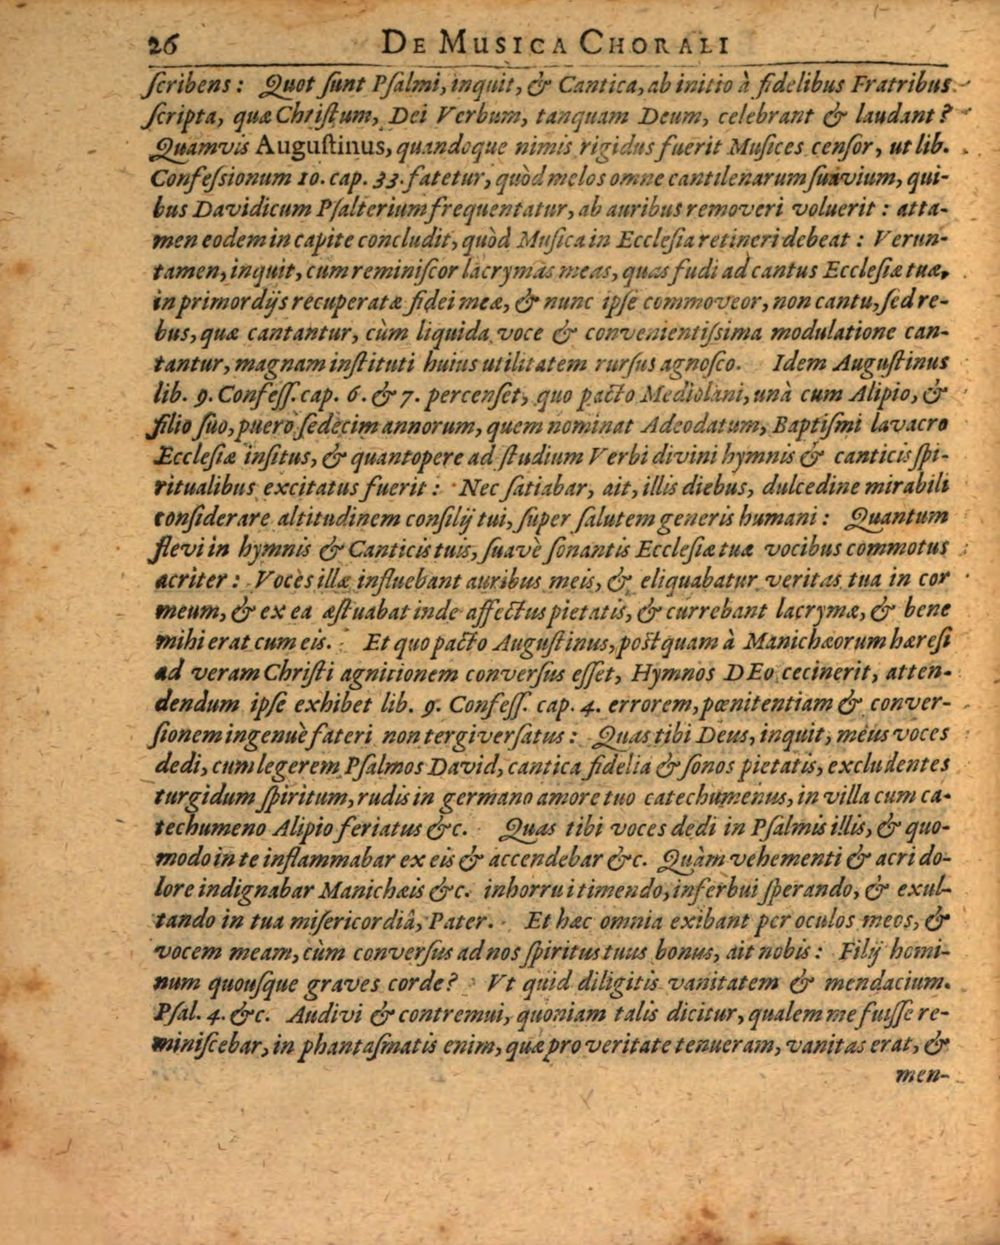 26 DE MUSICA CHORALI
ſcribens: Quot ſunt Pſalmi, inquit, & Cantica, ab initio à fidelibus Fratribus
ſcripta, quæ Chriſtum, Dei Verbum, tanquam Deum, celebrant & laudant?
Quamvis Auguſtinus, quandoque nimis rigidus fuerit Muſices cenſor, ut lib.
Confeſsionum 10. cap. 33. fatetur, quòd melos omne cantilenarum ſuavium, qui-
bus Davidicum Pſalterium frequentatur, ab auribus removeri voluerit: atta-
men eodem in capite concludit, quòd Muſica in Eccleſia retineri debeat: Verun-
tamen, inquit, cum reminiſcor lacrymas meas, quas fudi ad cantus Eccleſiæ tuæ,
in primordijs recuperatæ fidei meæ, & nunc ipſe commoveor, non cantu, ſed re-
bus, quæ cantantur, cùm liquida voce & convenientiſsima modulatione can-
tantur, magnam inſtituti huius utilitatem rurſus agnoſco. Idem Auguſtinus
lib. 9. Confeſſ. cap. 6. & 7. percenſet, quo pacto Mediolani, unà cum Alipio, &
filio ſuo, puero ſedecim annorum, quem nominat Adeodatum, Baptiſmi lavacro
Eccleſiæ inſitus, & quantopere ad ſtudium Verbi divini hymnis & canticis ſpi-
ritualibus excitatus fuerit: Nec ſatiabar, ait, illis diebus, dulcedine mirabili
conſiderare altitudinem conſilij tui, ſuper ſalutem generis humani: Quantum
flevi in hymnis & Canticis tuis, ſuavè ſonantis Eccleſiæ tuæ vocibus commotus
acriter: Voces illæ influebant auribus meis, & eliquabatur veritas tua in cor
meum, & ex ea æſtuabat inde affectus pietatis, & currebant lacrymæ, & bene
mihi erat cum eis. Et quo pacto Auguſtinus, poſtquam à Manichæorum hæreſi
ad veram Chriſti agnitionem converſus eſſet, Hymnos DEo cecinerit, atten-
dendum ipſe exhibet lib. 9. Confeſſ. cap. 4. errorem, pœnitentiam & conver-
ſionem ingenuè fateri non tergiverſatus: Quas tibi Deus, inquit, meus voces
dedi, cum legerem Pſalmos David, cantica fidelia & ſonos pietatis, excludentes
turgidum ſpiritum, rudis in germano amore tuo catechumenus, in villa cum ca-
techumeno Alipio feriatus &c. Quas tibi voces dedi in Pſalmis illis, & quo-
modo in te inflammabar ex eis & accendebar &c. Quàm vehementi & acri do-
lore indignabar Manichæis &c. inhorrui timendo, inferbui ſperando, & exul-
tando in tua miſericordiâ, Pater. Et hæc omnia exibant per oculos meos, &
vocem meam, cùm converſus ad nos ſpiritus tuus bonus, ait nobis: Filij homi-
num quouſque graves corde? Vt quid diligitis vanitatem & mendacium.
Pſal. 4. &c. Audivi & contremui, quoniam talis dicitur, qualem me fuiſſe re-
miniſcebar, in phantaſmatis enim, quæ pro veritate tenueram, vanitas erat, &
men-